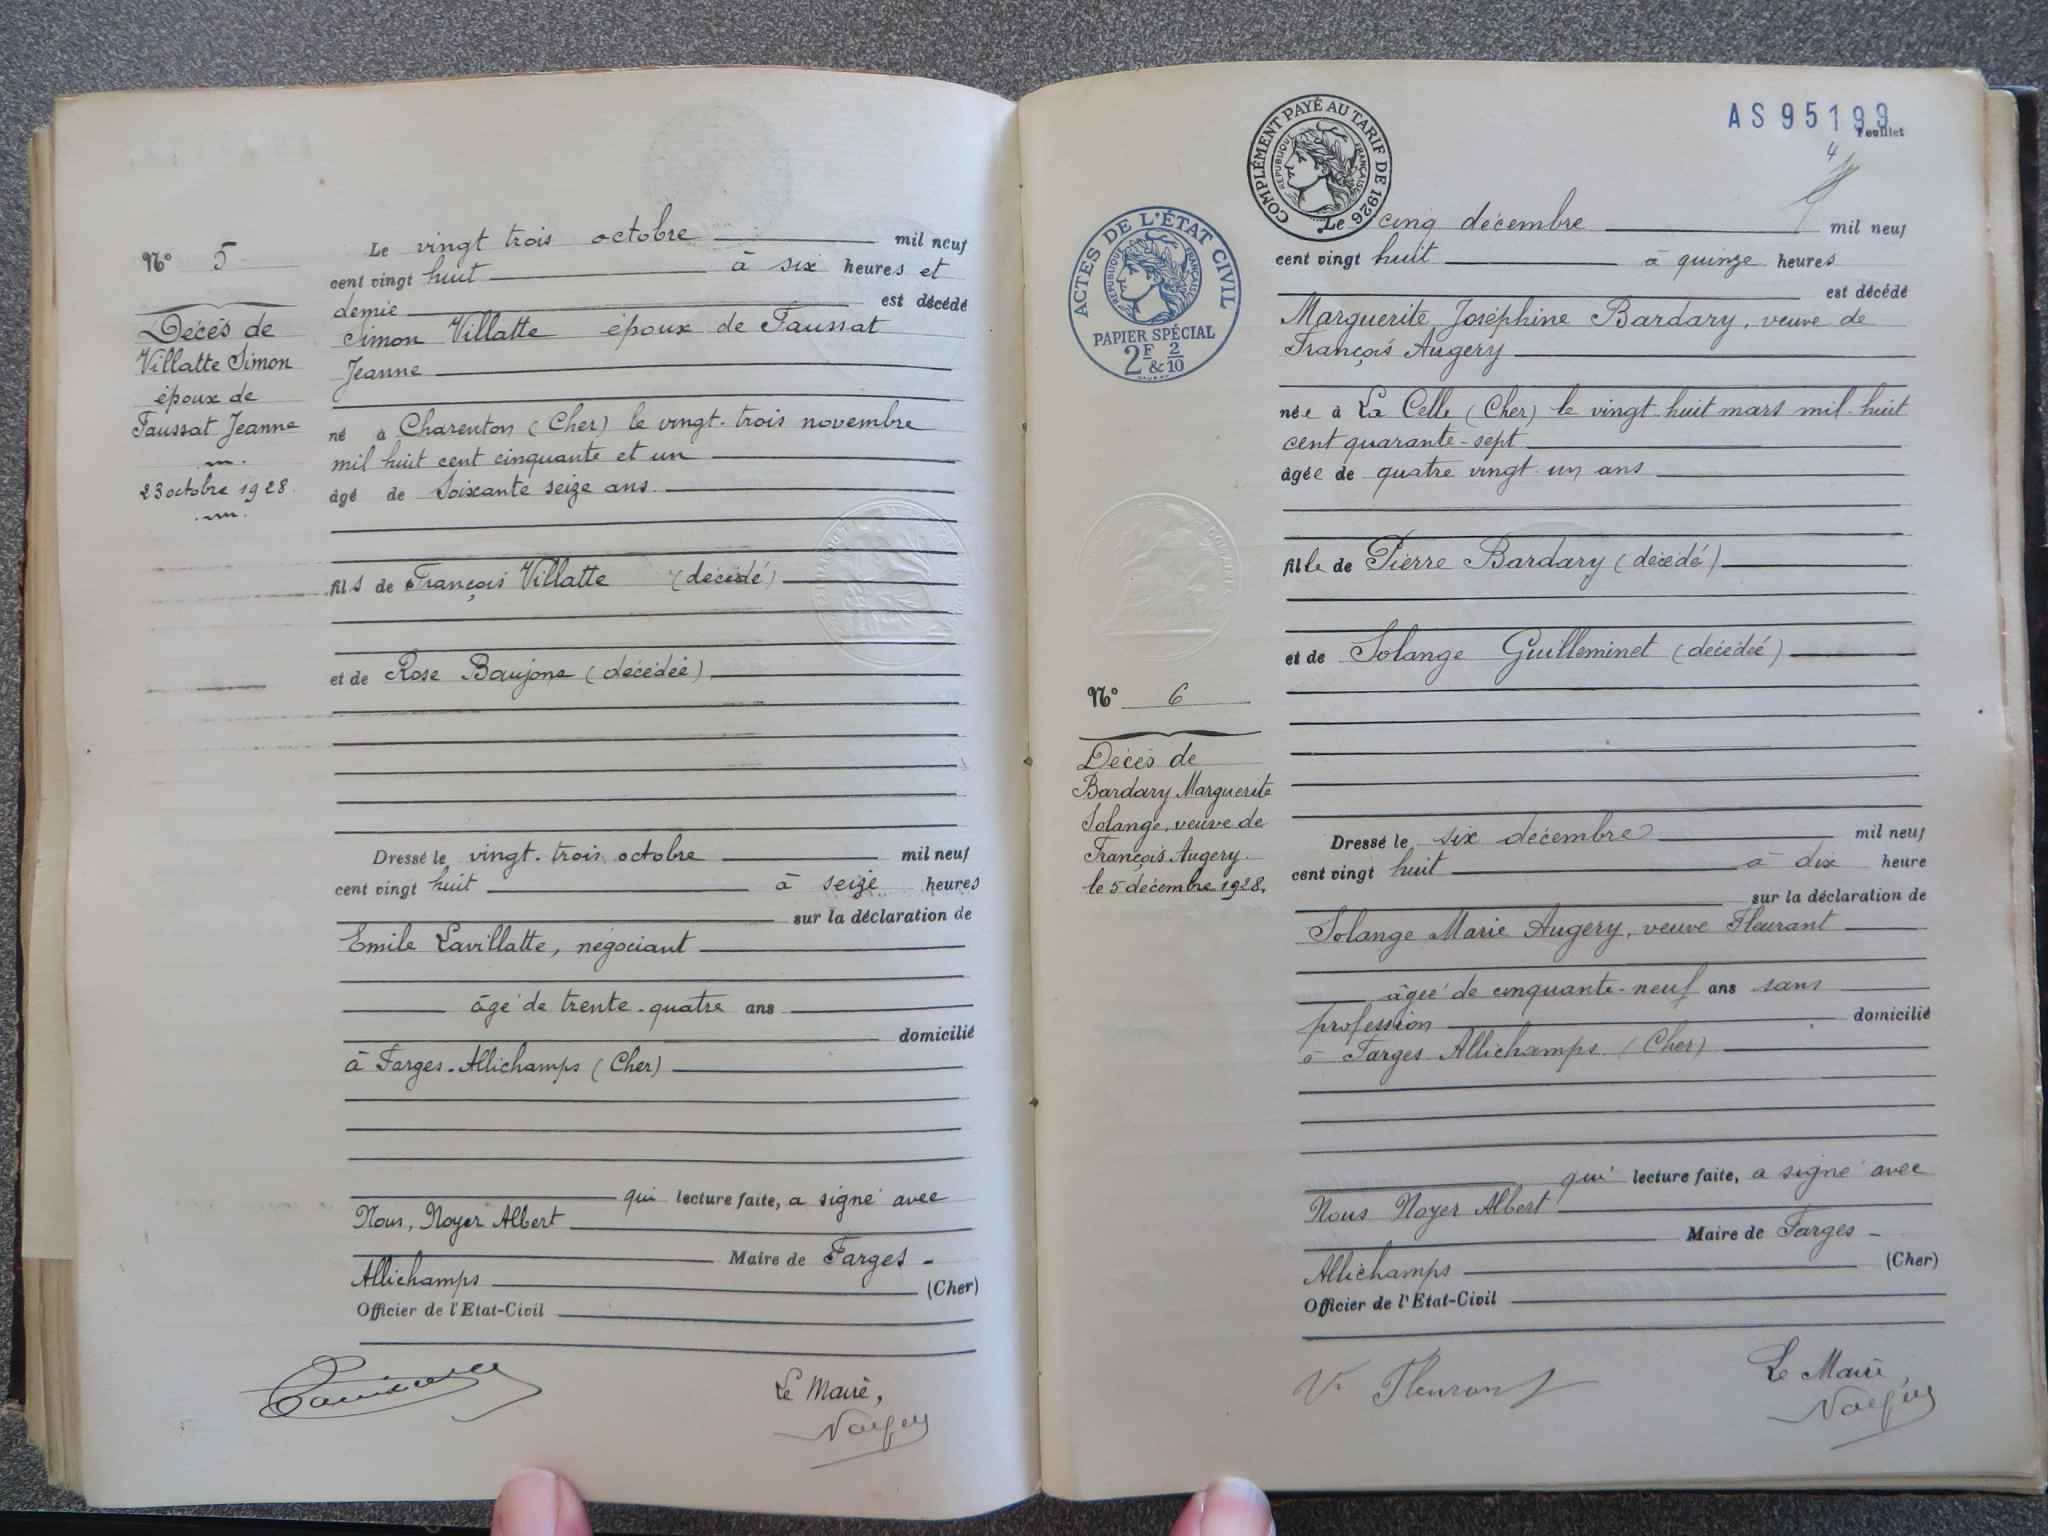 N° 5
Décès de
Villatte Simon
époux de
Faussat Jeanne
23 octobre 1928.
Le vingt trois octobre mil neuf
cent vingt huit à six heures et
demie est décédé
Simon Villatte époux de Faussat
Jeanne
né à Charenton (Cher) le vingt-trois novembre
mil huit cent cinquante et un
âgé de Soixante seize ans.
fils de François Villatte (décédé)
et de Rose Baujone (décédée)
Dressé le vingt-trois octobre mil neuf
cent vingt huit à seize heures
sur la déclaration de
Emile Lavillatte, négociant
âgé de trente-quatre ans
domicilié
à Farges-Allichamps (Cher)
qui lecture faite, a signé avec
Nous, Noyer Albert
Maire de Farges-
Allichamps (Cher)
Officier de l'Etat-Civil
Le Maire,
COMPLÉMENT PAYÉ AU TARIF DE 1926
RÉPUBLIQUE FRANÇAISE
AS95199
Feuillet
4
ACTES DE L'ÉTAT CIVIL
RÉPUBLIQUE FRANÇAISE
PAPIER SPÉCIAL
2F & 2/10
N° 6
Décès de
Bardary Marguerite
Solange, veuve de
François Augery
le 5 décembre 1928.
Le cinq décembre mil neuf
cent vingt huit à quinze heures
est décédé
Marguerite Joséphine Bardary, veuve de
François Augery
née à La Celle (Cher) le vingt-huit mars mil-huit
cent quarante-sept
âgée de quatre vingt-un ans
fille de Pierre Bardary (décédé)
et de Solange Guilleminet (décédée)
Dressé le six décembre mil neuf
cent vingt huit à dix heure
sur la déclaration de
Solange Marie Augery, veuve Fleurant
âgée de cinquante-neuf ans sans
profession domicilié
à Farges Allichamps (Cher)
qui lecture faite, a signé avec
Nous Noyer Albert
Maire de Farges-
Allichamps (Cher)
Officier de l'Etat-Civil
Ve Fleurant
Le Maire